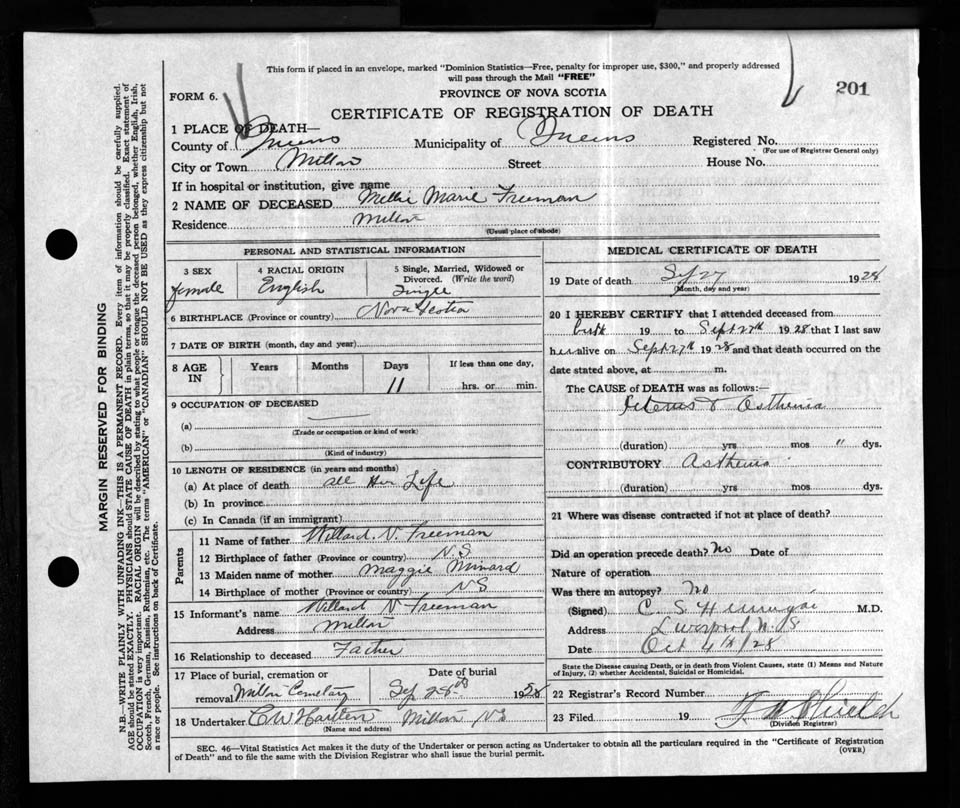 This form if placed in an envelope, marked "Dominion Statistics—Free, penalty for improper use, $300," and properly addressed
will pass through the Mail "FREE"
201
FORM 6.
PROVINCE OF NOVA SCOTIA
CERTIFICATE OF REGISTRATION OF DEATH
1 PLACE OF DEATH—
County of Queens Municipality of Queens Registered No.
(For use of Registrar General only)
City or Town Milton Street House No.
If in hospital or institution, give name
2 NAME OF DECEASED Marie Freeman
Residence Milton
(Usual place of abode)
PERSONAL AND STATISTICAL INFORMATION
3 SEX 4 RACIAL ORIGIN 5 Single, Married, Widowed or
Divorced. (Write the word)
female English Single
6 BIRTHPLACE (Province or country) Nova Scotia
7 DATE OF BIRTH (month, day and year)
8 AGE IN Years Months Days If less than one day,
11 hrs. or min.
9 OCCUPATION OF DECEASED
(a)
(Trade or occupation or kind of work)
(b)
(Kind of industry)
10 LENGTH OF RESIDENCE (in years and months)
(a) At place of death all Her Life
(b) In province
(c) In Canada (if an immigrant)
Parents
11 Name of father Willard V. Freeman
12 Birthplace of father (Province or country) N S
13 Maiden name of mother Maggie Minard
14 Birthplace of mother (Province or country) N S
15 Informant's name Willard V Freeman
Address Milton
16 Relationship to deceased Father
17 Place of burial, cremation or Date of burial
removal Milton Cemetary Sep 28th 1928
18 Undertaker C W Milton NS
(Name and address)
MEDICAL CERTIFICATE OF DEATH
19 Date of death Sep 27 1928
(Month, day and year)
20 I HEREBY CERTIFY that I attended deceased from
birth 19 to Sept 27th 1928 that I last saw
her alive on Sept 27th 1928 and that death occurred on the
date stated above, at m.
The CAUSE of DEATH was as follows:—
Icterus & Asthenia
(duration) yrs mos 11 dys.
CONTRIBUTORY Asthenia
(duration) yrs. mos dys.
21 Where was disease contracted if not at place of death?
Did an operation precede death? No Date of
Nature of operation
Was there an autopsy? No
(Signed) C. S. M.D.
Address Liverpool, N. S.
Date Oct 4th/28
State the Disease causing Death, or in death from Violent Causes, state (1) Means and Nature
of Injury, (2) whether Accidental, Suicidal or Homicidal.
22 Registrar's Record Number
23 Filed 19
(Division Registrar)
SEC. 46—Vital Statistics Act makes it the duty of the Undertaker or person acting as Undertaker to obtain all the particulars required in the "Certificate of Registration
of Death" and to file the same with the Division Registrar who shall issue the burial permit.
(OVER)
MARGIN RESERVED FOR BINDING
N.B.—WRITE PLAINLY WITH UNFADING INK—THIS IS A PERMANENT RECORD. Every item of information should be carefully supplied.
AGE should be stated EXACTLY. PHYSICIANS should STATE CAUSE OF DEATH in plain terms, so that it may be properly classified. Exact statement of
OCCUPATION is very important. RACIAL ORIGIN will be described by stating to what people or tongue the deceased person belonged, whether English, Irish,
Scotch, French, German, Russian, Ruthenian, etc. The terms "AMERICAN" or "CANADIAN" SHOULD NOT BE USED as they express citizenship but not
a race or people. See instructions on back of Certificate.